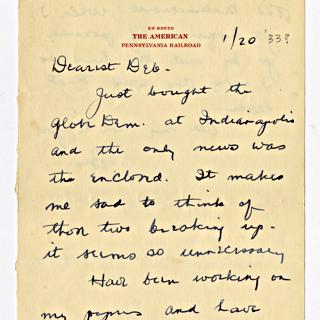 EN ROUTE
THE AMERICAN
PENNSYLVANIA RAILROAD
1/20 '33?
Dearest Deb -
Just bought the
Globe Dem. at Indianapolis
and the only news was
the enclosed. It makes
me sad to think of
those two breaking up -
it seems so unnecessary
Have been working on
my papers and have